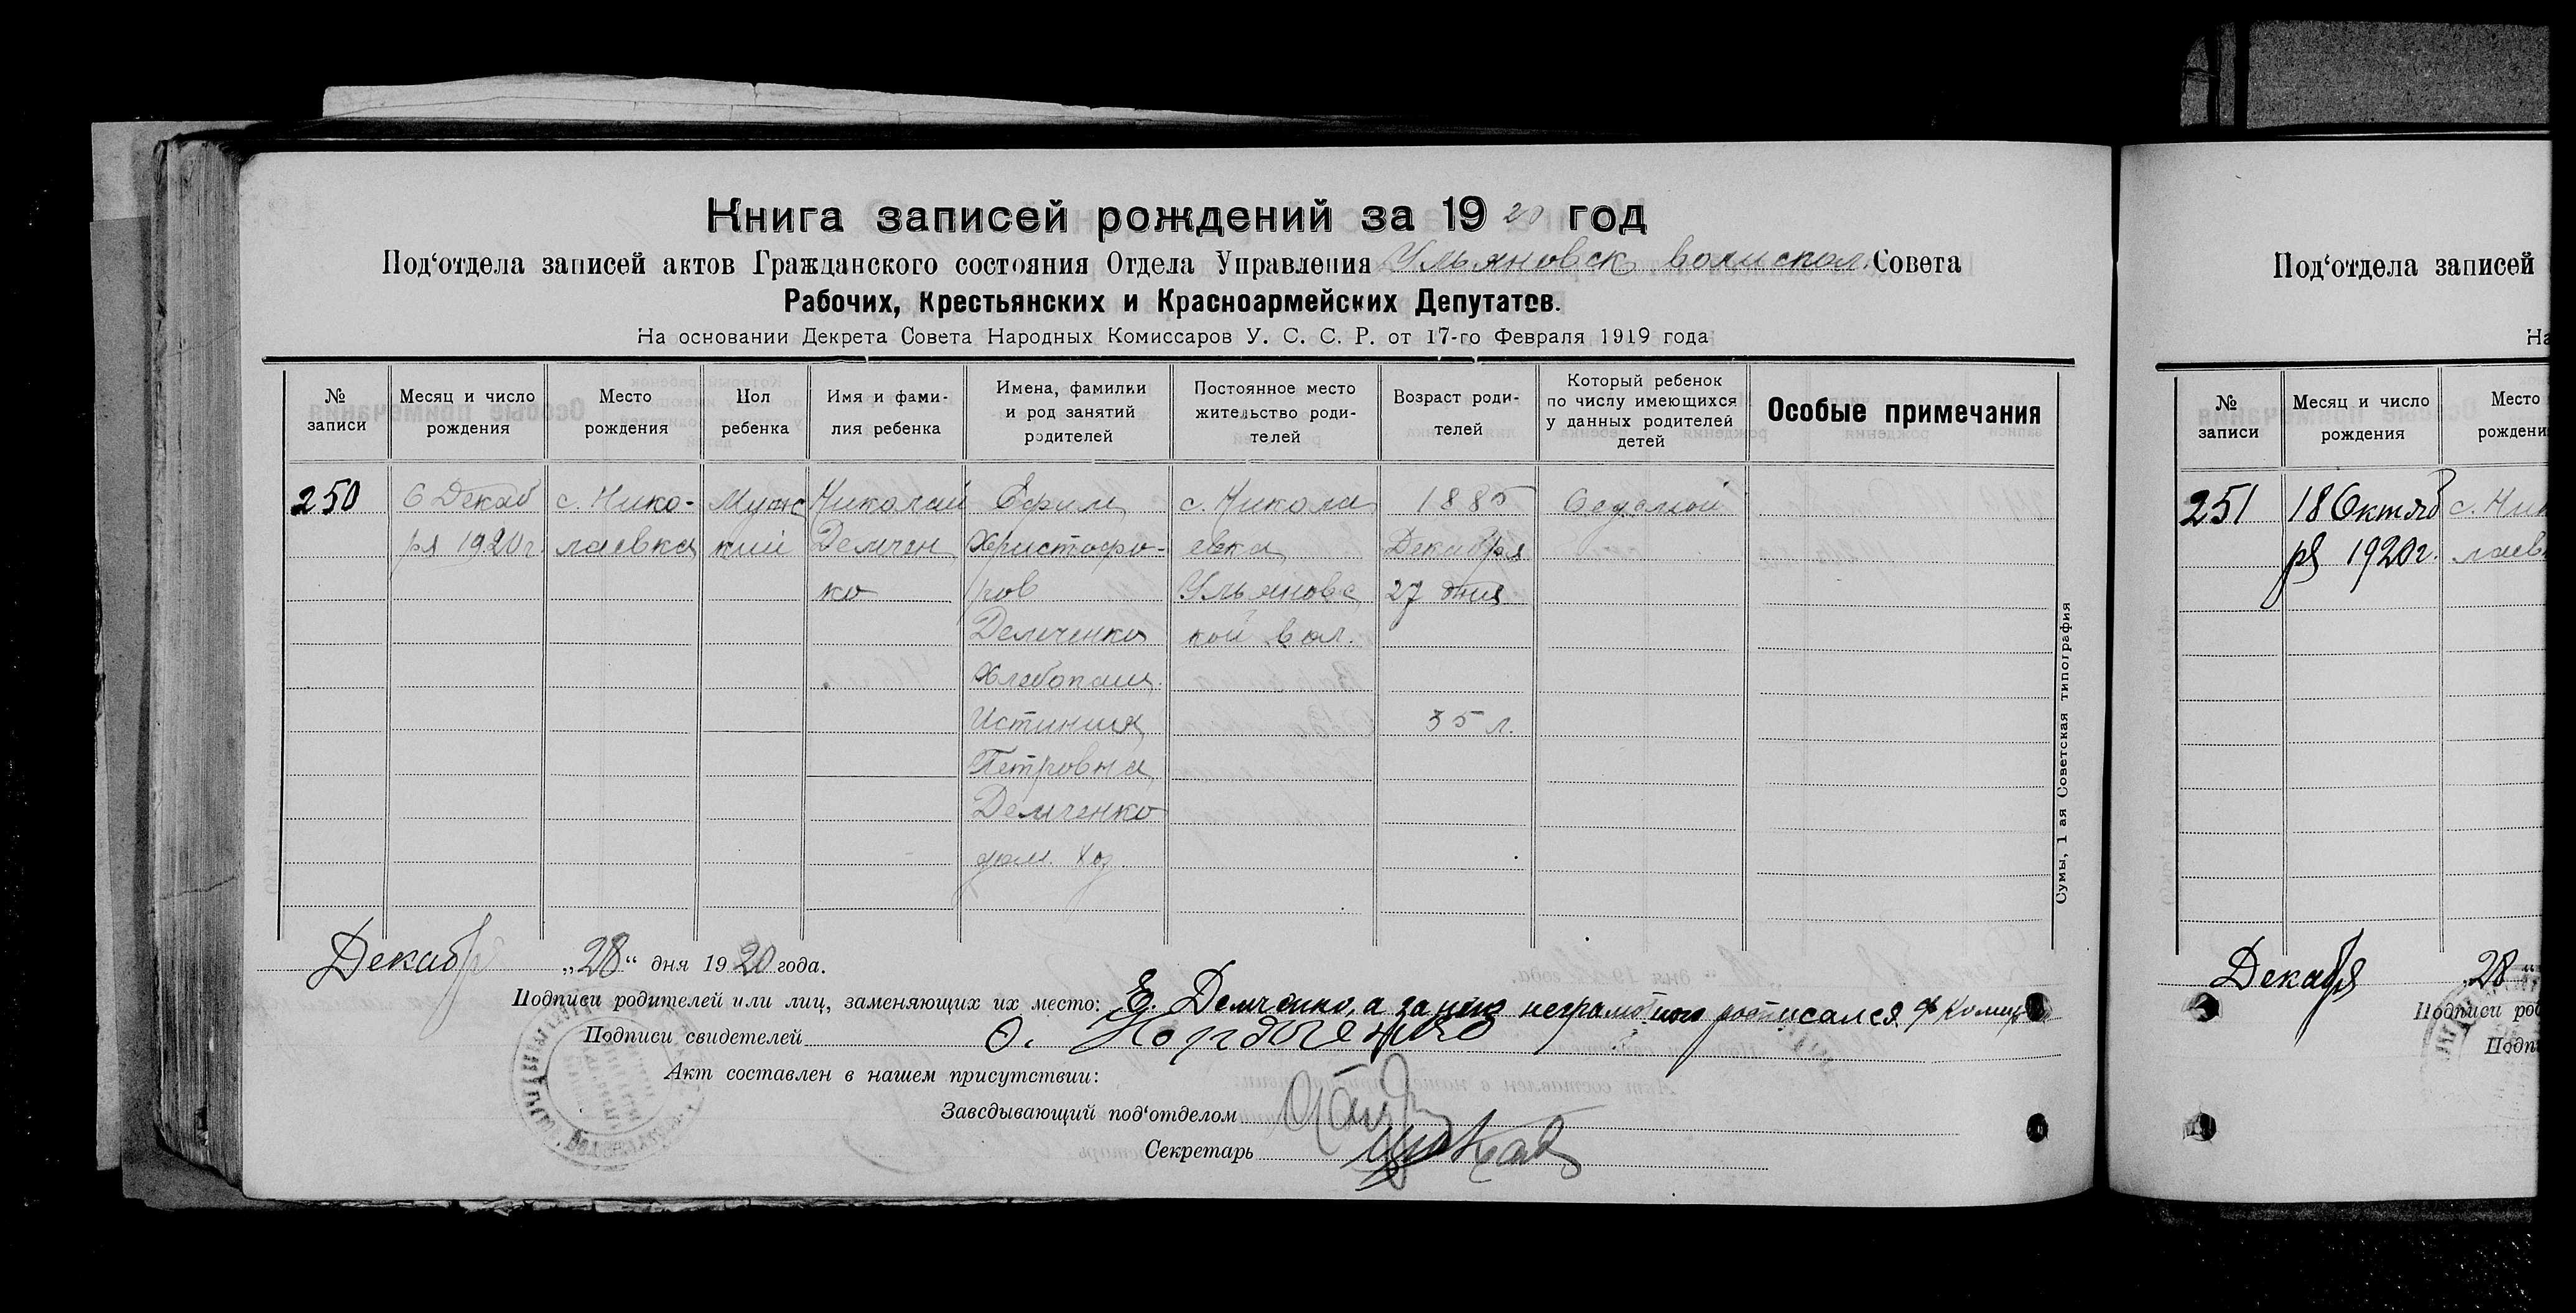 Книга записей рождений за 1920 год
Под‘отдела записей актов Гражданского состояния Отдела Управления Ульяновск волиспол. Совета
Рабочих, Крестьянских и Красноармейских Депутатов.
На основании Декрета Совета Народных Комиссаров У. С. С. Р. от 17-го Февраля 1919 года
№ записи
Месяц и число рождения
Место рождения
Пол ребенка
Имя и фами-
лия ребенка
Имена, фамилии
и род занятий
родителей
Постоянное место
жительство роди-
телей
Возраст роди-
телей
Который ребенок
по числу имеющихся
у данных родителей
детей
Особые примечания
250
6 Декаб
ря 1920г.
с. Нико-
лаевка
Мужс
кий
Николай
Демчен
ко
Ефим
Христофо-
ров
Демченко
Хлебопаш.
Истиния
Петровна
Демченко
дом. хоз.
с. Никола
евка
Ульяновс
кой вол.
1885
Декабря
27 дня
35 л.
Седьмой
Декабр „28“ дня 1920 года.
Подписи родителей или лиц, заменяющих их место: Е. Демченко, а за него неграмотного росписался
Подписи свидетелей
Акт составлен в нашем присутствии:
Заведывающий под‘отделом
Секретарь
Сумы, 1 ая Советская типография
Под‘отдела записей
На
№ записи
Месяц и число рождения
Место
рождени
251
18 Октяб
ря 1920г.
с. Ник
лаев
Декабря „28“
Подписи род
Подп